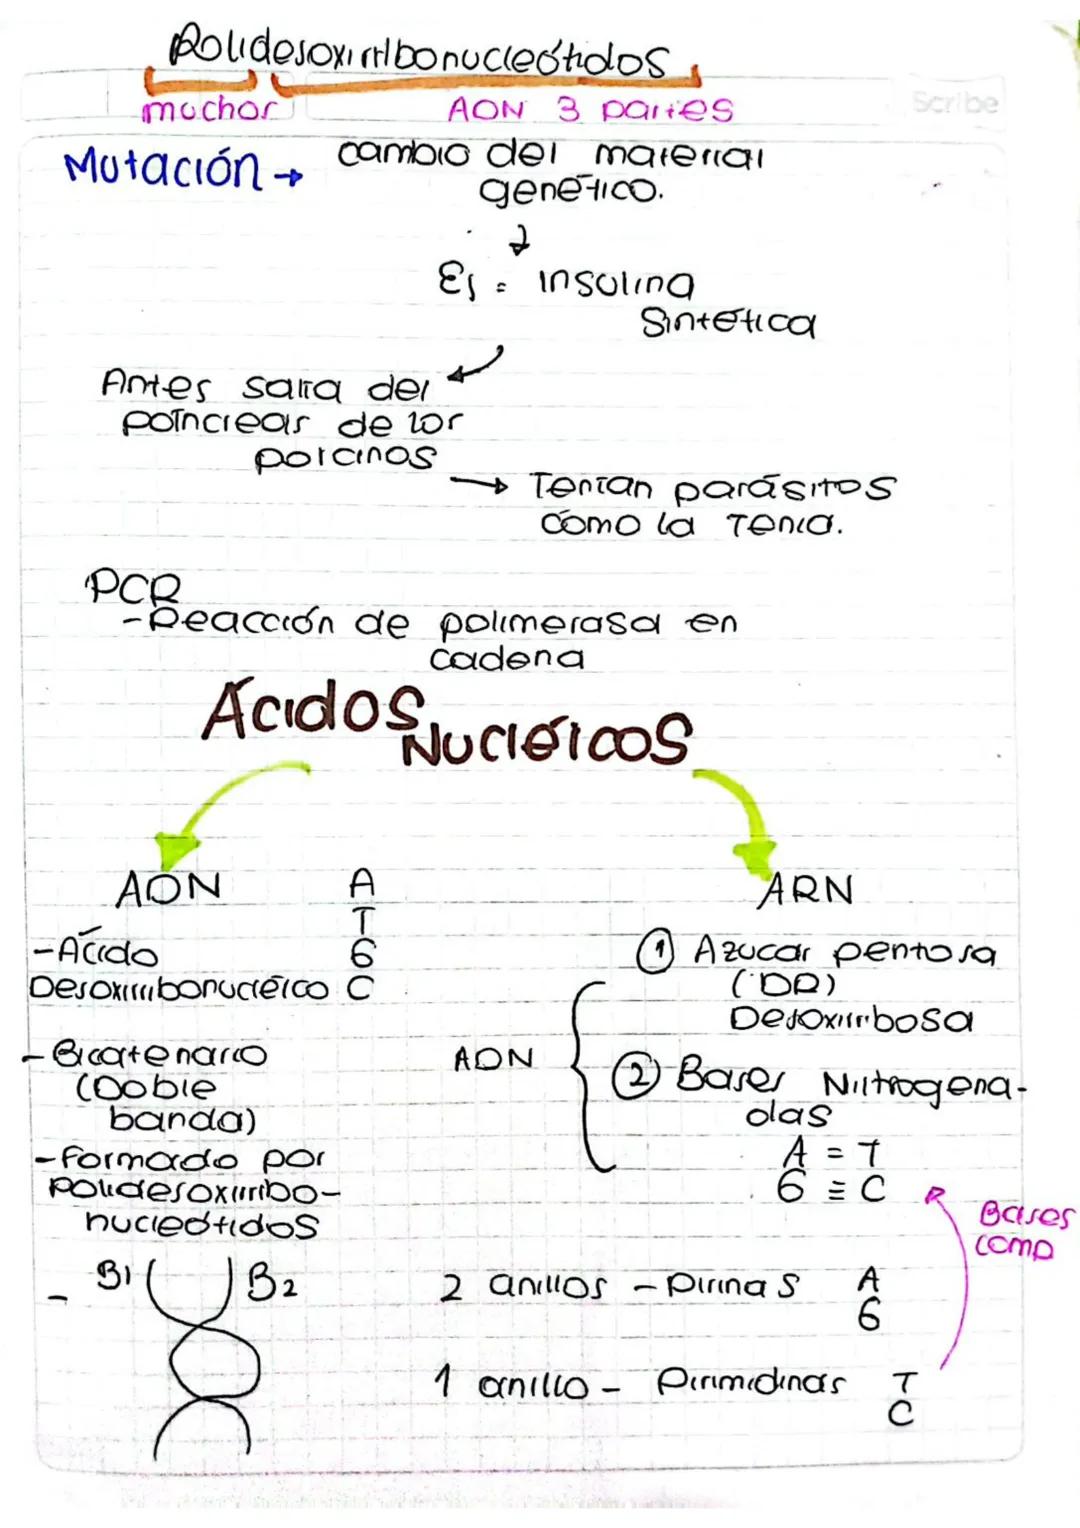 Polidesoxirribonucleótidos
muchos
ADN 3 partes
Scribe
Mutación → cambio del material
genético.
Ej = Insulina
Sintética
Antes salía del
páncreas de los
porcinos
→ Tenían parásitos
como la Tenia.
PCR
-Reacción de polimerasa en
cadena
Ácidos
Nucléicos
ADN
A
T
G
C
-Ácido
Desoxirribonucléico
- Bicatenario
(Doble
banda)
-Formado por
Polidesoxirribo-
nucleótidos
- B1 B2
ARN
ADN
① Azucar pentosa
(DR)
Desoxirribosa
② Bases Niitrogena-
das
A = T
G ≡ C
Bases
comp
2 anillos - Pirinas A
G
1 anillo - Pirimidinas T
C